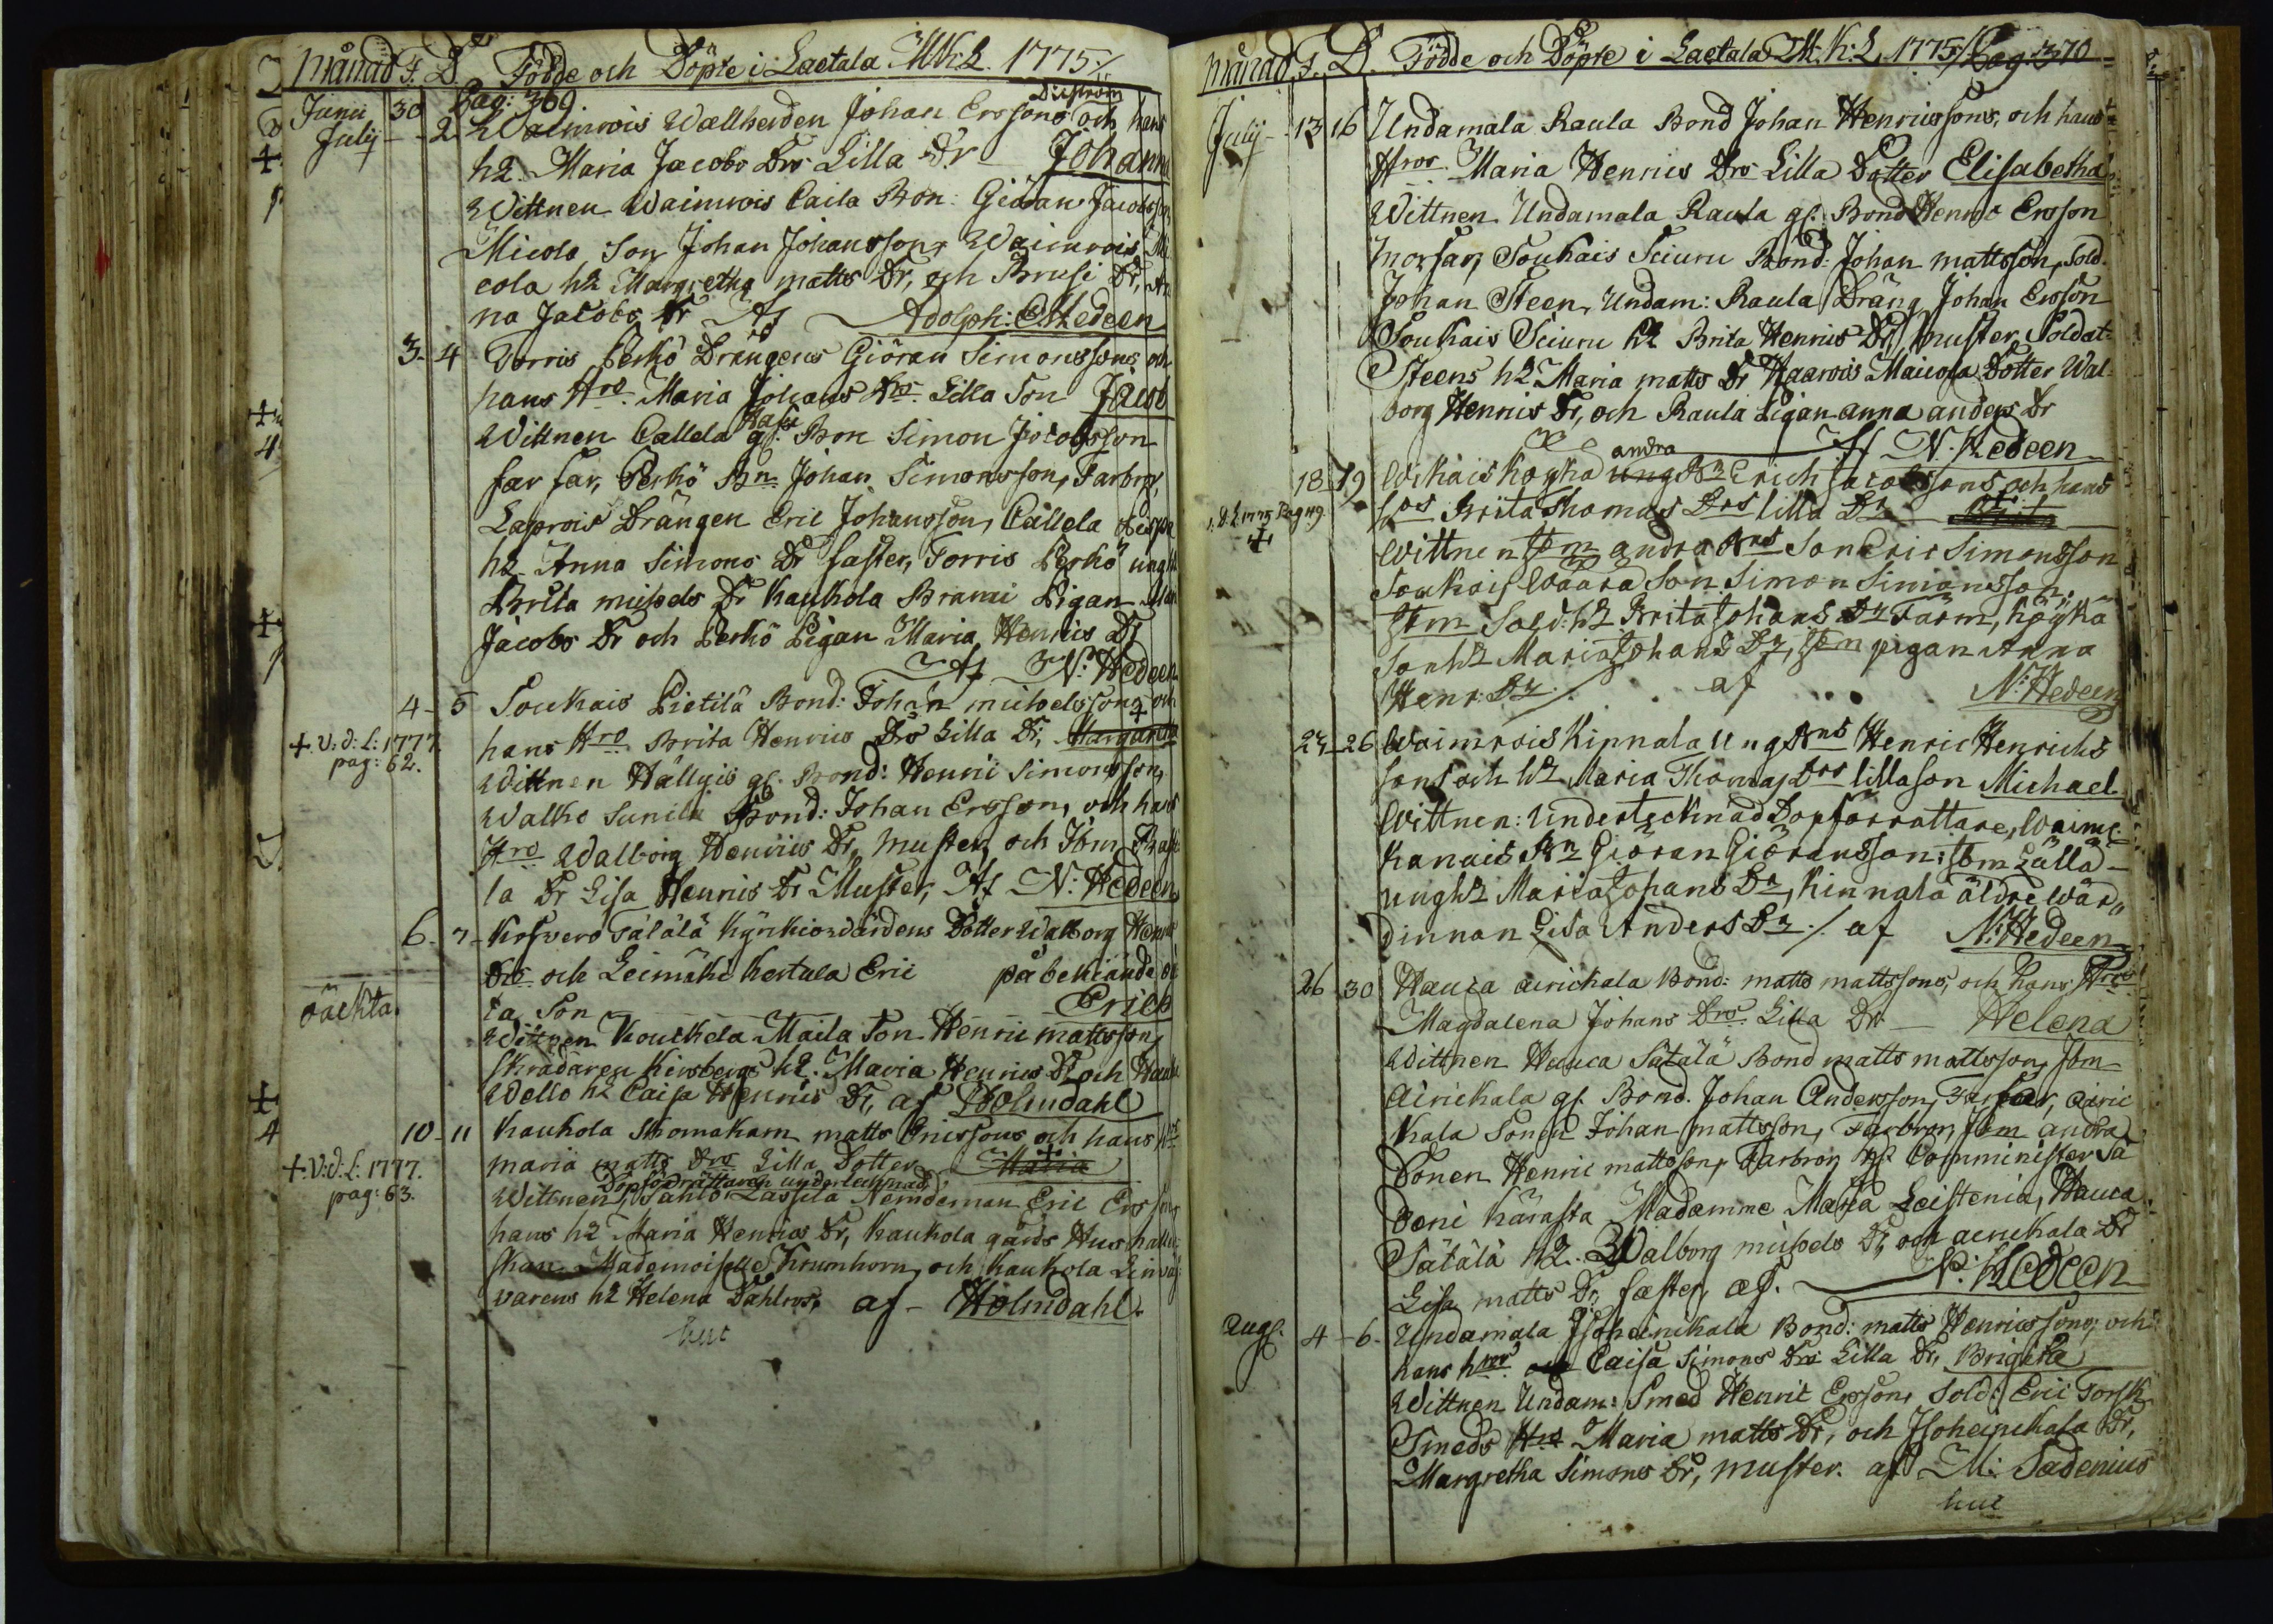 Månad F. D. Födde och Döpte i Laetala M.K:L. 1775:/
Pag: 369.
Junii 30 Dikström
Julij - 2 Waimrois Wallherden Johan Erssons och hans
h2. Maria Jacobs Drs Lilla Dr Johanna
Wittnen Waimrois Caila Bon: Giöran Jacobsson
Micola Son Johan Johansson, Waimrois Mi
cola h2 Margretha matts Dr, och Brusi Dr, An
na Jacobs Dr Af Adolph: Hedeen
3 - 4 Torris Perkö Drängens Giöran Simonssons och
hans Hro Maria Johans Drs Lilla Son Jacob
Wittnen Callela Rasi gl. Bon Simon Jacobsson
farfar, Perkö Bn Johan Simonsson, Farbror,
Laprois Drängen Eric Johansson, Callela
h2 Anna Simons Dr faster, Torris Perkö ung h2
Brita michels Dr Kaukola Brami Pigan
Jacobs Dr och Perkö Pigan Maria Henrics Dr
Af N: Hedeen
4 - 5 Soukais Pietilä Bond: Johan michelssons och
+. V: d: L: 1777. pag: 62.
hans Hro Brita Henrics Drs Lilla Dr, Margareta +
Wittnen Hällyis gl. Bond: Henric Simonsson,
Walko Sunila Bond: Johan Ersson, och hans
Hro Walborg Henrics Dr, Muster, och Ibm
la Dr Lisa Henrics Dr Muster, Af N: Hedeen
6 - 7 Kosvero Tälälä Kyrkiovärdens Dotter Walborg Henric
Drs och Leimäki Kertula Eric på bekiände oä
oächta. ta Son Erich
Wittnen Kouckela Maila Son Henric mattsson,
Skrädaren Kirsbergs h2. Maria Henrics Dr och
Wello h2 Caisa Henrics Dr, af Holmdahl
10 - 11 Kaukola Skomakarn matts Ericssons och hans Hro
+. V: d: L: 1777. pag: 63.
maria matts Drs Lilla Dotter + Maria
Dopförrättaren undertecknad
Wittnen, Sahlo Lassila Nemdeman Eric Ersson,
hans h2 Maria Henrics Dr, Kaukola gårds Hushåll
skan Mademoiselle Krumhorn, och Kaukola Linväf
varens h2 Helena Dahlros, af - Holmdahl.
huc
Månad F. D. Födde och Döpte i Laetala M.K:L. 1775/ Pag. 370
Julij - 13 16 Undamala Raula Bond Johan Henricssons, och hans
Hros Maria Henrics Drs Lilla Dotter Elisabetha
Wittnen Undamala Raula gl. Bond Henric Ersson
morfar, Soukais Sciuru Bond: Johan mattsson, Sold.
Johan Steen, Undam: Raula Dräng Johan Ersson
Soukais Sciuru h2 Brita Henrics Dr, muster, Soldat
Steens h2 Maria matts Dr Haarois Maicola Dotter Wal
borg Henrics Dr, och Raula Pigan anna anders Dr
Af N: Hedeen
18 19 Wikais Köykä andra ung Bn Erich Jacobssons och hans
D: L 1775 Pag 49. +
Hos Brita Thomas Drs lilla Dr + Brita
Wittnen Ibm andra Bns Son Eric Simonsson
Soukais Waara Son Simon Simonsson.
Ibm Sold: h2 Brita Johans Dr Farm, Köykä
Son h2 Maria Johans Dr, Ibm pigan Anna
Henr: Dr / af N: Hedeen
24 26 Waimrois Kinnala Ung Bns Henric Henrichs
sons och h2 Maria Thomas Drs lilla son Michael
Wittnen: Undertecknad Dopförrättare, Waimr:
Kanais Bn Giöran Giöransson: Ibm Lällä
ung h2 Maria Johans Dr, Kinnala äldre Wär„
dinnan Lisa Anders Dr./. af N: Hedeen
26 30 Hauca airickala Bond: matts mattssons, och hans Hros
Magdalena Johans Drs Lilla Dr Helena
Wittnen Hauca Sätälä Bond matts mattsson, Ibm
Airickala gl. Bond. Johan Andersson, Farfar, airic
kala Sonen Johan mattsson, Farbror, Ibm andra
Sonen Henric mattsson, Farbror, Hr Comminister Sa
deni Kärasta Madamme Maria Leistenia, Hauca
Sätälä h2. Walborg michels Dr, och airickala Dr
Lisa matts Dr, faster, af. N: Hedeen
Augs. 4 - 6. Undamala Isoheinickala Bond: matts Henricssons, och
hans hros Caisa Simons Drs Lilla Dr, Brigita
Wittnen Undam: Smed Henric Ersson, Sold: Eric Torsk
Smeds Hro Maria matts Dr, och Isoheinickala Dr,
Margretha Simons Dr, muster. af M: Sadenius
huc